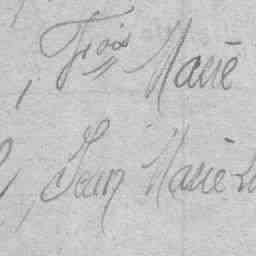 , Trois Marie
, Jean Marie